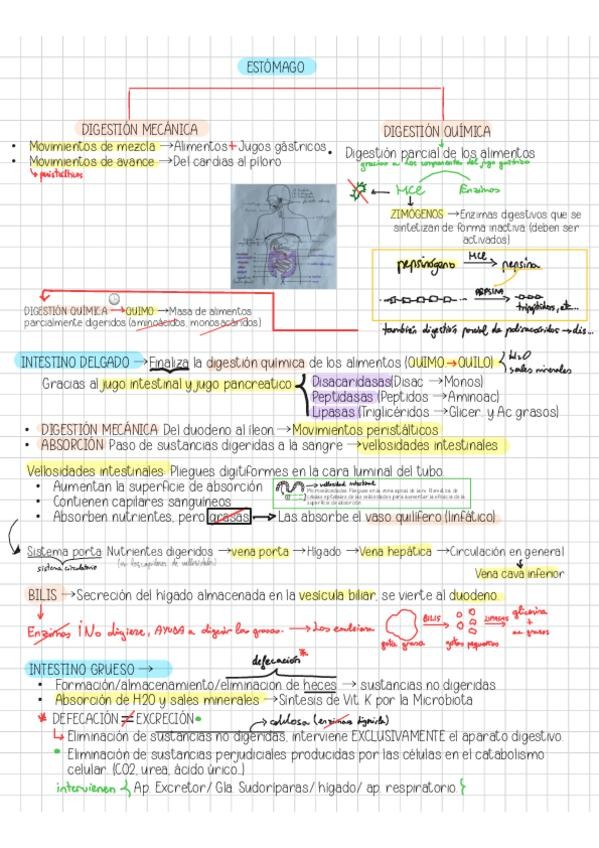 ESTÓMAGO
DIGESTIÓN MECÁNICA
• Movimientos de mezcla → Alimentos + Jugos gástricos
• Movimientos de avance → Del cardias al píloro
↳ peristálticos
DIGESTIÓN QUÍMICA
• Digestión parcial de los alimentos
gracias a los componentes del jugo gástrico
HCl Enzimas
ZIMÓGENOS → Enzimas digestivos que se
sintetizan de forma inactiva (deben ser
activados)
pepsinógeno HCl → pepsina
PEPSINA → tripéptidos, etc...
también digestión parcial de polisacáridos → dis...
DIGESTIÓN QUÍMICA → QUIMO → Masa de alimentos
parcialmente digeridos (aminoácidos, monosacáridos)
INTESTINO DELGADO → Finaliza la digestión química de los alimentos (QUIMO → QUILO) H2O
sales minerales
Gracias al jugo intestinal y jugo pancreático
Disacaridasas (Disac → Monos)
Peptidasas (Peptidos → Aminoac)
Lipasas (Triglicéridos → Glicer. y Ac grasos)
• DIGESTIÓN MECÁNICA Del duodeno al íleon → Movimientos peristálticos
• ABSORCIÓN Paso de sustancias digeridas a la sangre → vellosidades intestinales
Vellosidades intestinales: Pliegues digitiformes en la cara luminal del tubo.
• Aumentan la superficie de absorción
• Contienen capilares sanguíneos
→ vellosidad intestinal
• Absorben nutrientes, pero grasas → Las absorbe el vaso quilífero (linfático)
Sistema porta: Nutrientes digeridos → vena porta → Hígado → Vena hepática → Circulación en general
sistema circulatorio (en los capilares de vellosidades)
Vena cava inferior
BILIS → Secreción del hígado almacenada en la vesícula biliar, se vierte al duodeno.
Enzimas ¡No digiere, AYUDA a digerir las grasas. → Las emulsiona
gota grasa BILIS → gotas pequeñas LIPASAS → glicerina
+
ac grasos
INTESTINO GRUESO →
defecación *
• Formación/almacenamiento/eliminación de heces → sustancias no digeridas
• Absorción de H2O y sales minerales → Síntesis de Vit. K por la Microbiota
* DEFECACIÓN ≠ EXCRECIÓN •
→ celulosa (enzimas digestivo)
↳ Eliminación de sustancias no digeridas, interviene EXCLUSIVAMENTE el aparato digestivo.
• Eliminación de sustancias perjudiciales producidas por las células en el catabolismo
celular. (CO2, urea, ácido úrico..)
intervienen { Ap. Excretor/ Gla. Sudoríparas/ hígado/ ap. respiratorio. }